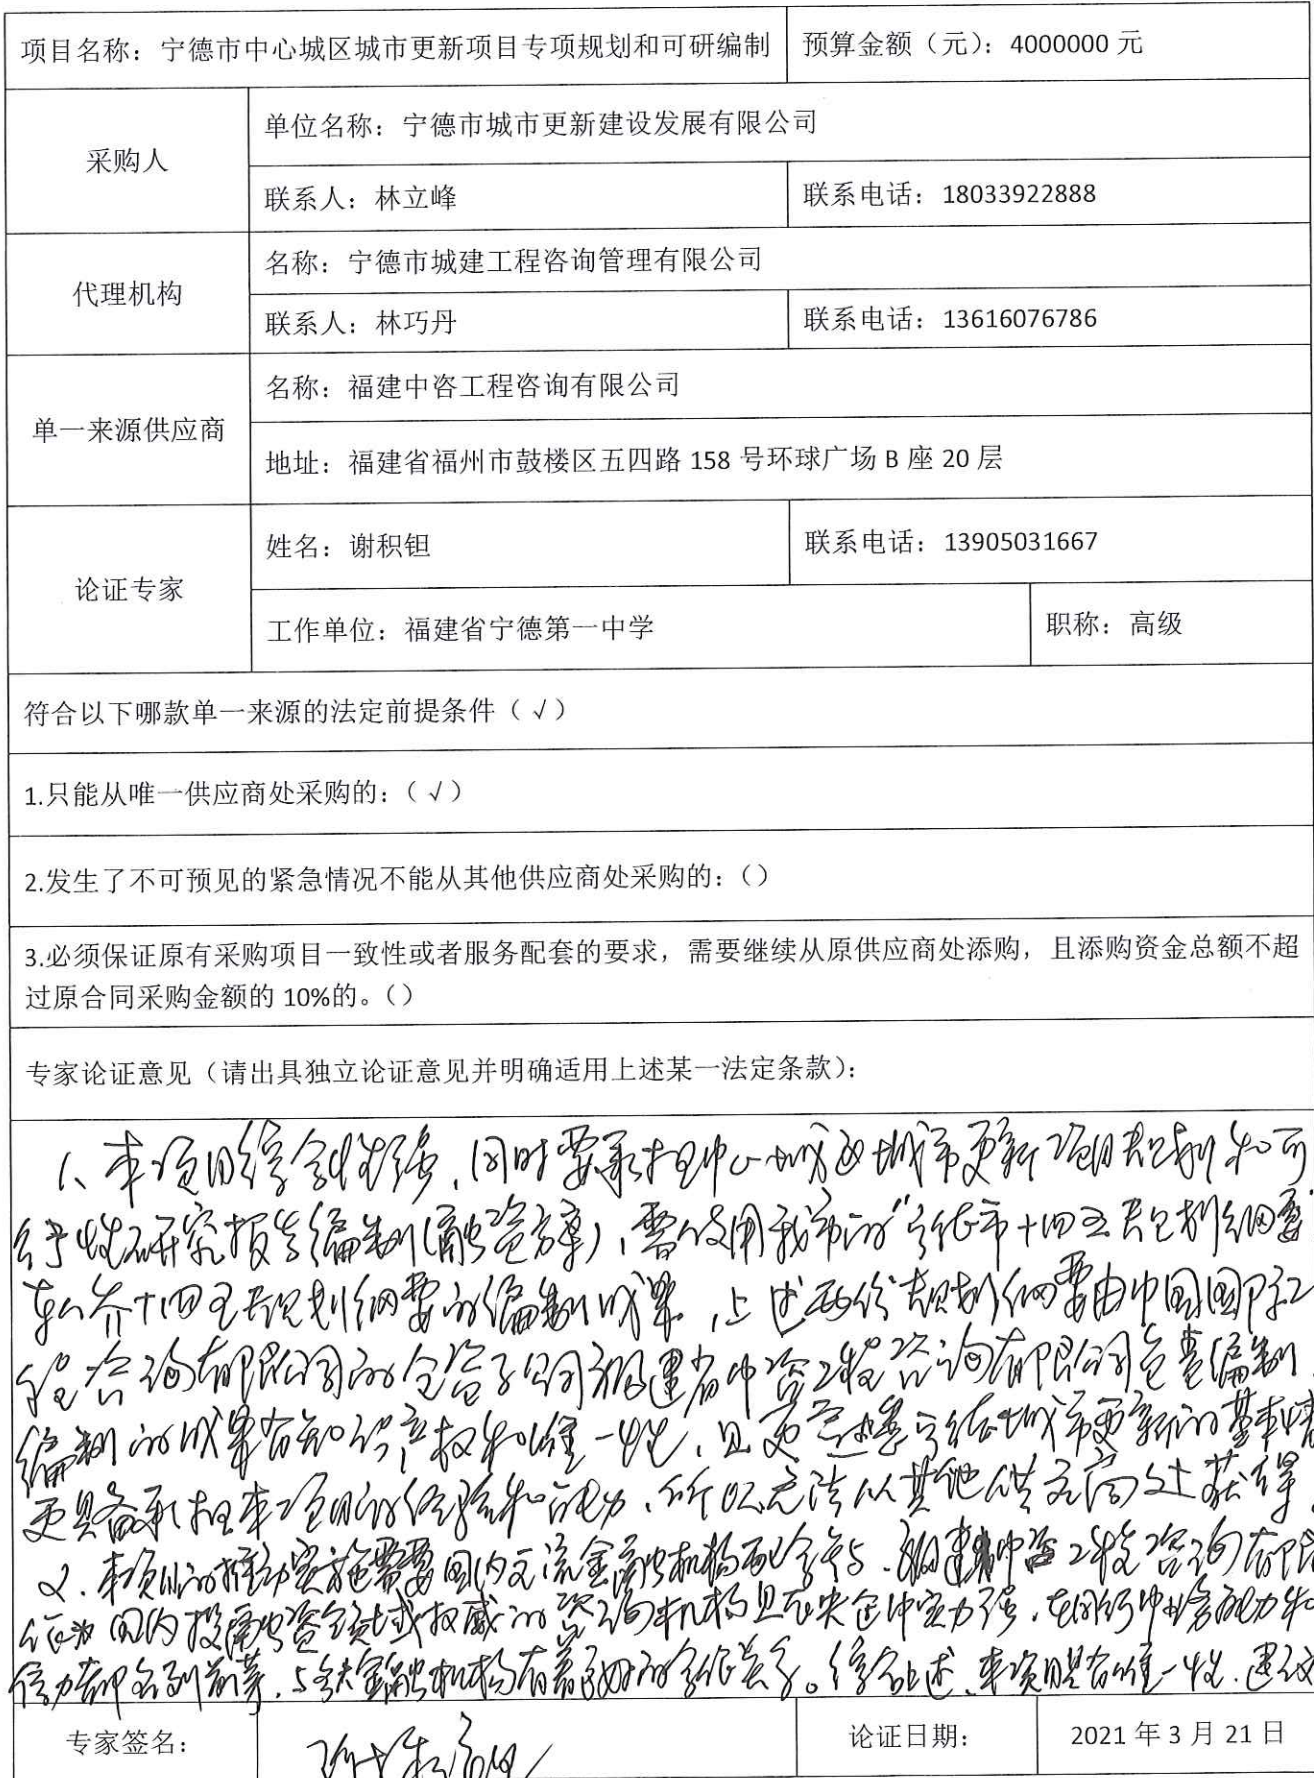 项目名称：宁德市中心城区城市更新项目专项规划和可研编制 预算金额（元）：4000000 元
采购人
单位名称：宁德市城市更新建设发展有限公司
联系人：林立峰 联系电话：18033922888
代理机构
名称：宁德市城建工程咨询管理有限公司
联系人：林巧丹 联系电话：13616076786
单一来源供应商
名称：福建中咨工程咨询有限公司
地址：福建省福州市鼓楼区五四路 158 号环球广场 B 座 20 层
论证专家
姓名：谢积钽 联系电话：13905031667
工作单位：福建省宁德第一中学 职称：高级
符合以下哪款单一来源的法定前提条件（√）
1.只能从唯一供应商处采购的：（√）
2.发生了不可预见的紧急情况不能从其他供应商处采购的：（）
3.必须保证原有采购项目一致性或者服务配套的要求，需要继续从原供应商处添购，且添购资金总额不超
过原合同采购金额的 10%的。（）
专家论证意见（请出具独立论证意见并明确适用上述某一法定条款）：
1、本项目综合性强，同时要承担中心城区城市更新项目规划和可
行性研究报告编制（融资方案），需使用我市的“宁德市十四五规划纲要
十四五规划纲要的编制成果，上述两份规划纲要由中国国际工
程咨询有限公司的全资子公司福建省中咨工程咨询有限公司负责编制，
编制的成果有知识产权和唯一性，且更宁德城市更新的基本情
更具备承担本项目的经验和能力，所以无法从其他供应商处获得。
2、本项目的推动实施需要国内主流金融机构配合参与，福建中咨工程咨询有限
作为国内投融资领域权威的咨询机构且在央企中实力强，在同行中业务能力和
信力都名列前茅，与各大金融机构有着良好的合作关系。综合上述，本项目具有唯一性，建议
专家签名： 谢积钽 论证日期： 2021 年 3 月 21 日